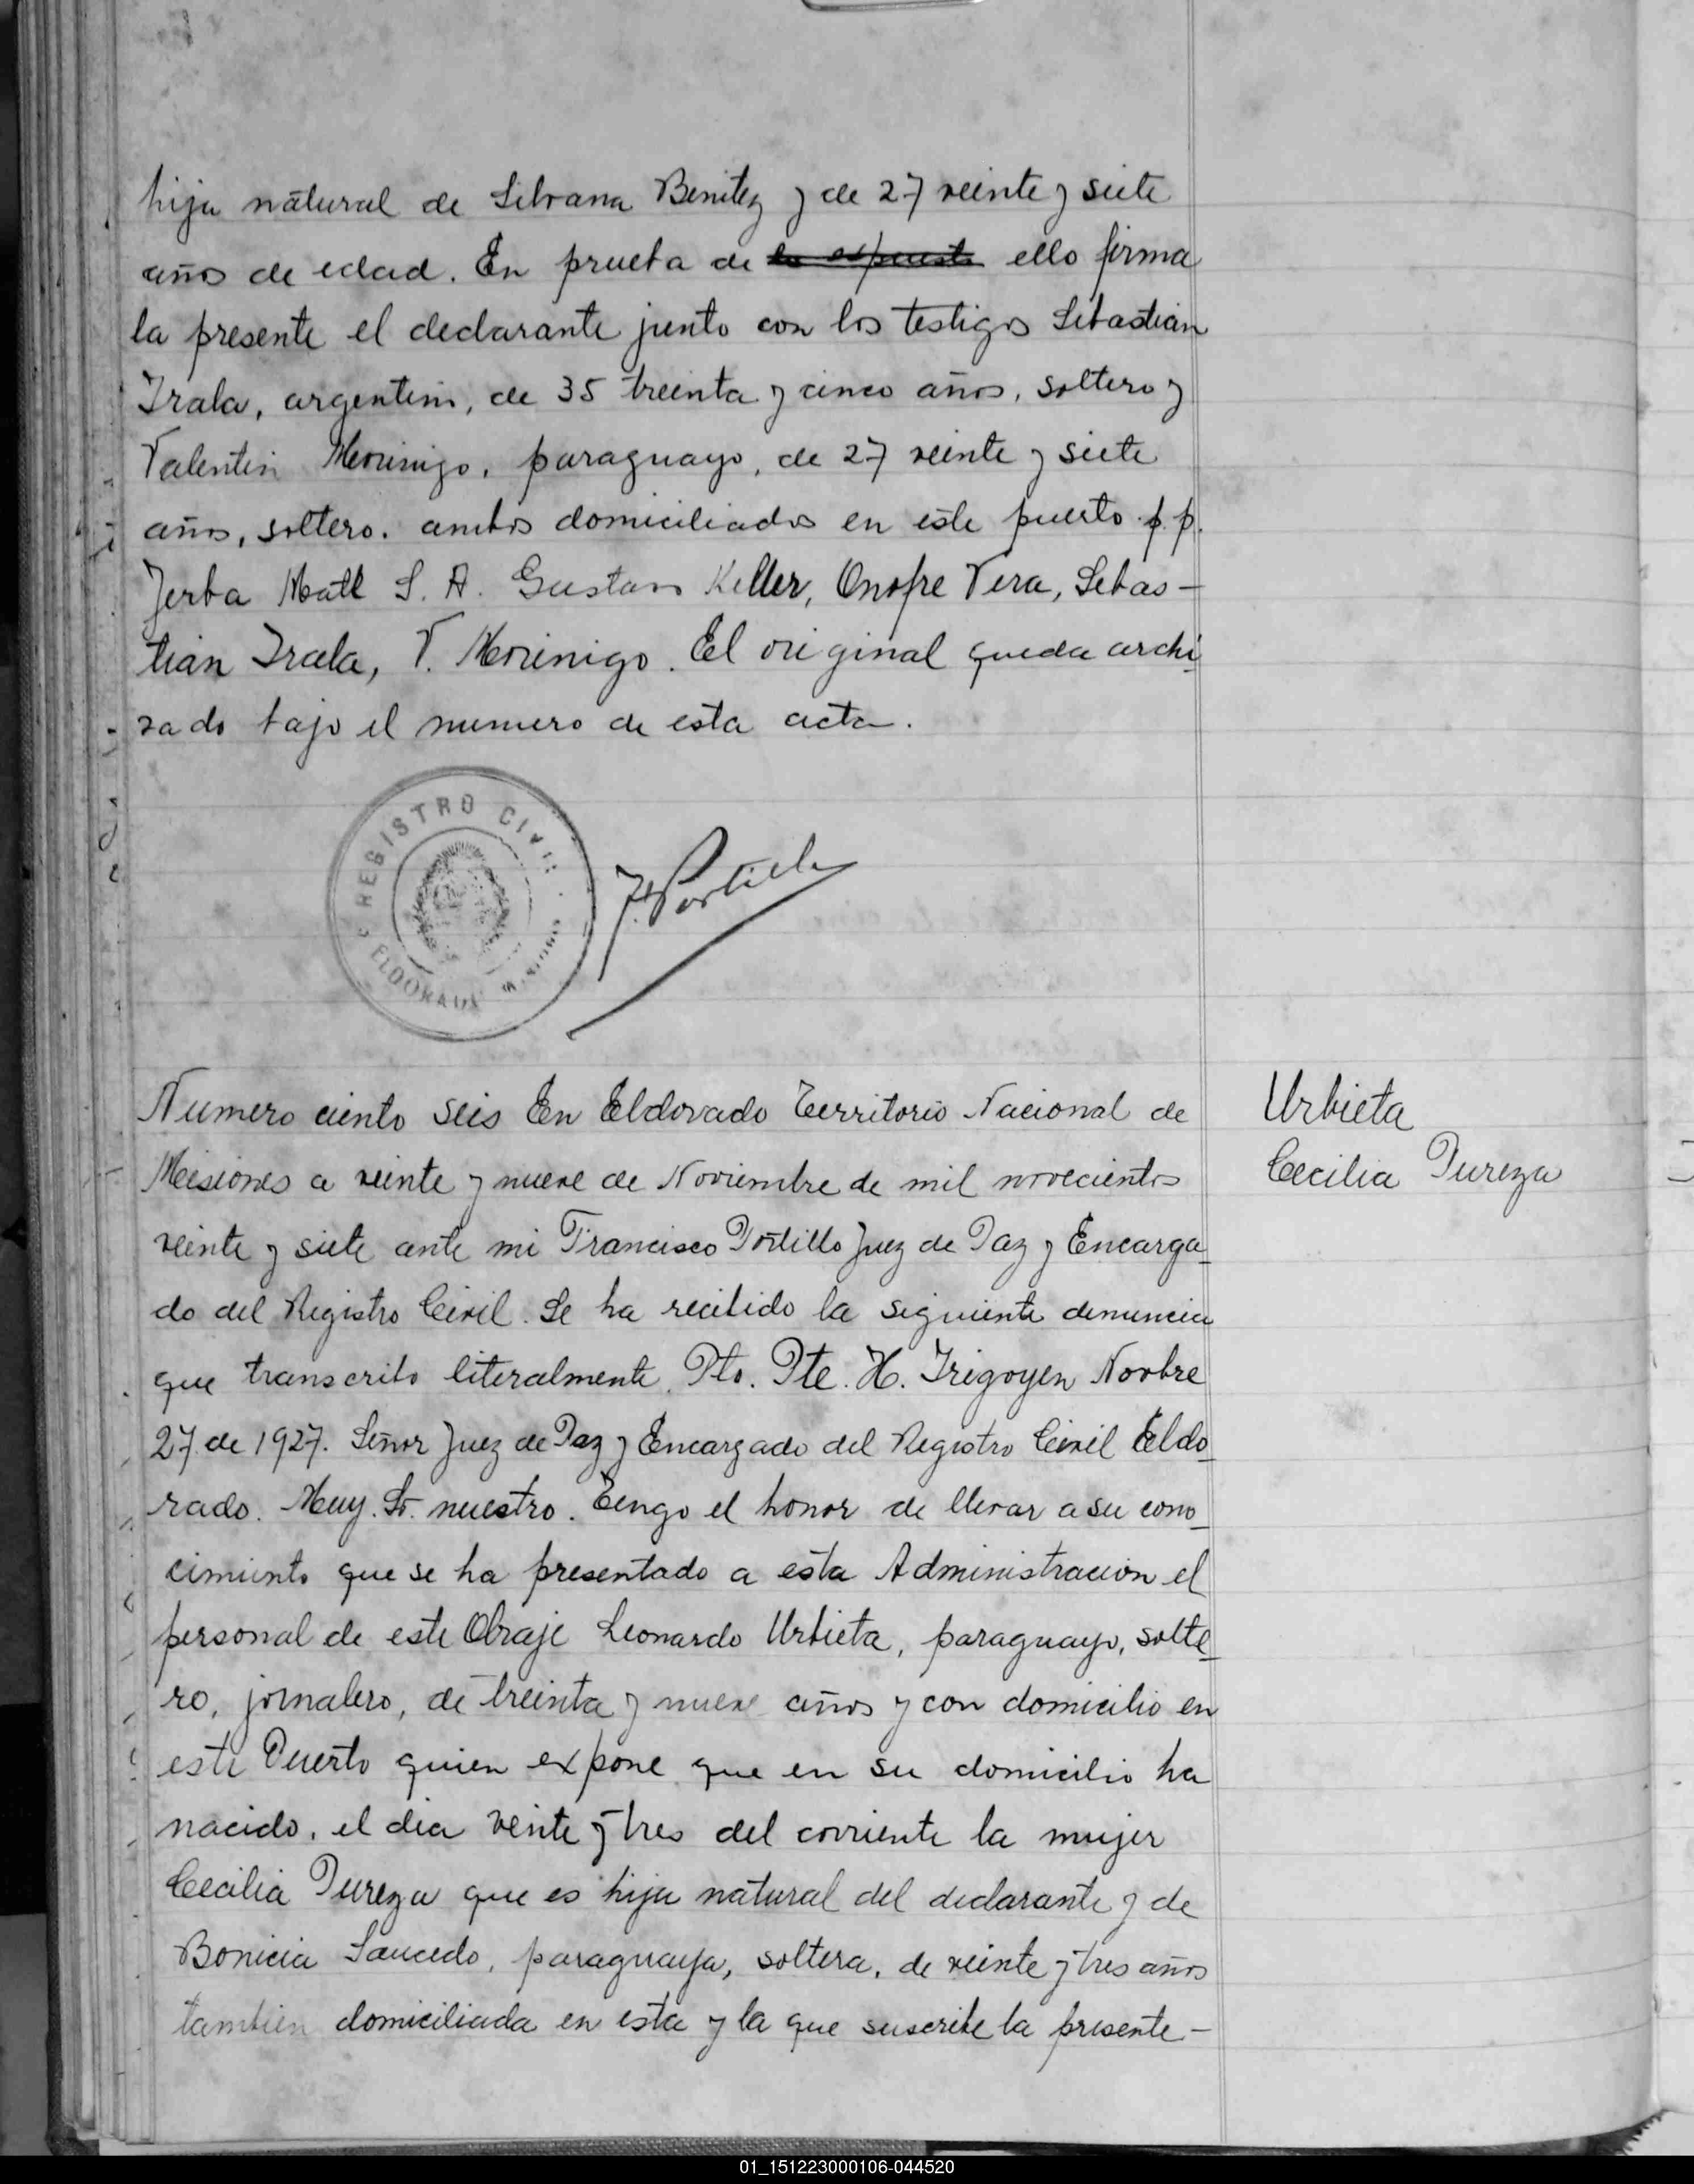 hija natural de Silvana Benitez y de 27 veinte y siete
años de edad. En prueba de lo expuesto ello firma
la presente el declarante junto con los testigos Sebastian
Irala, argentino, de 35 treinta y cinco años, soltero y
Valentin Morinigo, paraguayo, de 27 veinte y siete
años, soltero. ambos domiciliados en este puerto. p. p.
Yerba Matte S. A. Gustavo Keller, Onofre Vera, Sebas-
tian Irala, V. Morinigo. El original queda archi
vado bajo el numero de esta acta.
REGISTRO CIVIL
ELDORADO MISIONES
F. Portillo
Numero ciento seis En Eldorado Territorio Nacional de
Misiones a veinte y nueve de Noviembre de mil novecientos
veinte y siete ante mi Francisco Portillo Juez de Paz y Encarga
do del Registro Civil. Se ha recibido la siguiente denuncia
que transcribo literalmente. Pto. Pte. H. Irigoyen Novbre
27 de 1927. Señor Juez de Paz y Encargado del Registro Civil Eldo
rado. Muy. Sr. nuestro. Tengo el honor de llevar a su cono
cimiento que se ha presentado a esta Administracion el
personal de este Obraje Leonardo Urbieta, paraguayo, solte
ro, jornalero, de treinta y nueve años y con domicilio en
este Puerto quien expone que en su domicilio ha
nacido, el dia veinte y tres del corriente la mujer
Cecilia Pureza que es hija natural del declarante y de
Bonicia Saucedo, paraguaya, soltera, de veinte y tres años
tambien domiciliada en esta y la que suscribe la presente-
Urbieta
Cecilia Pureza
01_151223000106-044520